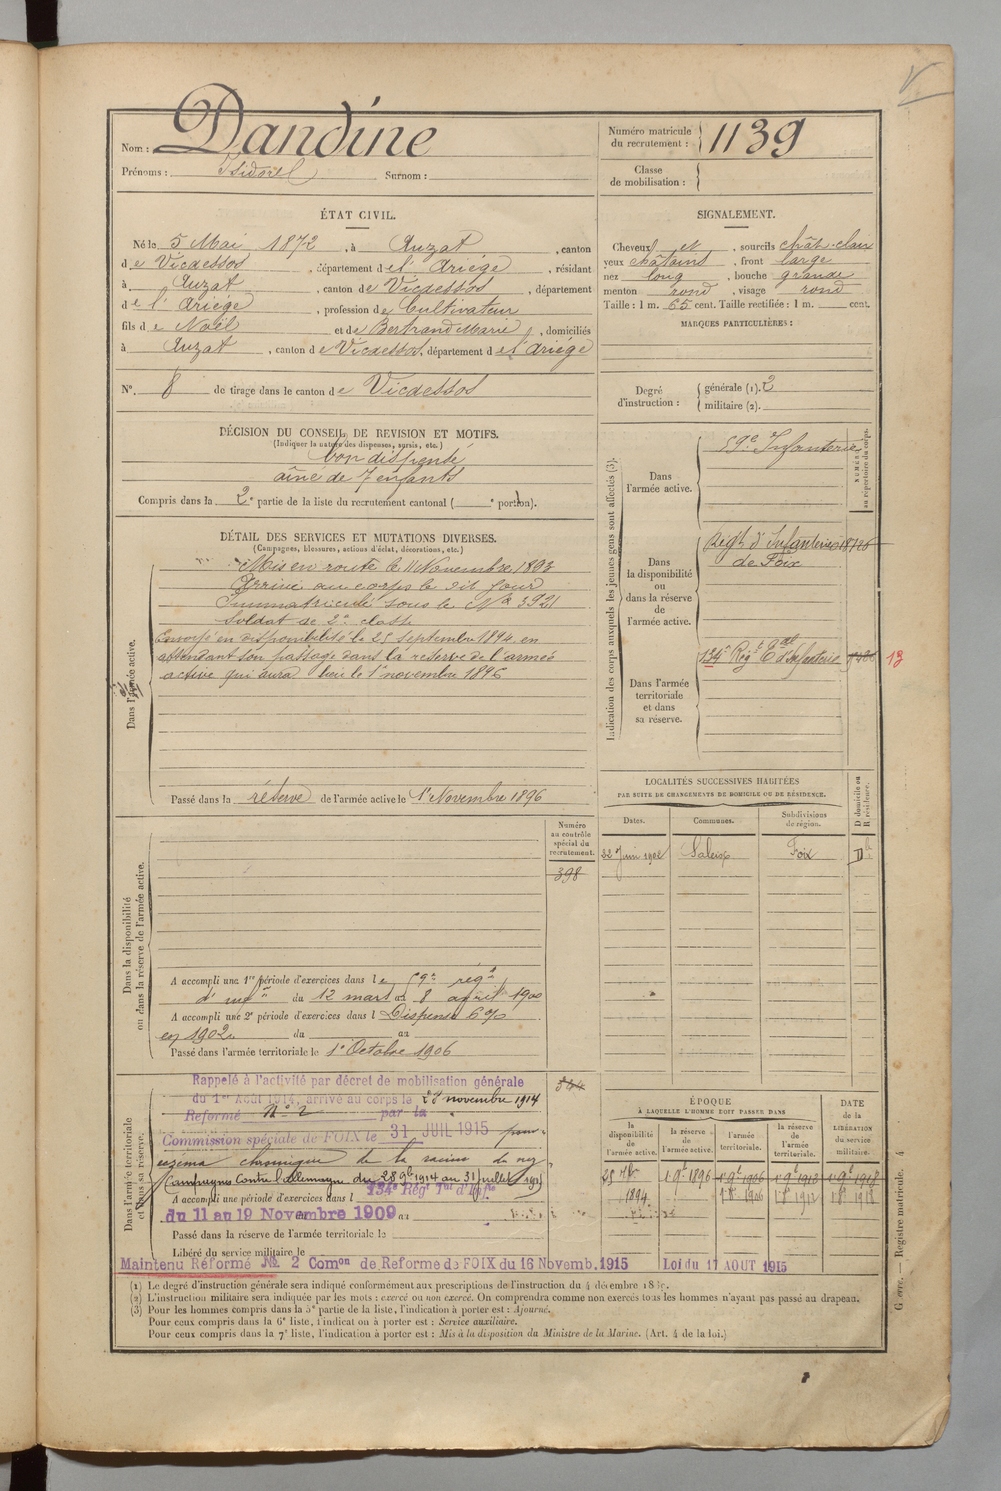 Nom : Dandine
Prénoms : Isidore Surnom :
Numéro matricule du recrutement : 1139
Classe de mobilisation :
ÉTAT CIVIL.
Né le 5 Mai 1872, à Auzat, canton
de Vicdessos, département de l'Ariége, résidant
à Auzat, canton de Vicdessos, département
de l'Ariége, profession de Cultivateur
fils de Noël et de Bertrand Marie, domiciliés
à Auzat, canton de Vicdessos, département de l'Ariége
N°. 8 de tirage dans le canton de Vicdessos
SIGNALEMENT.
Cheveux et, sourcils chât-clair
yeux châtains, front large
nez long, bouche grande
menton rond, visage rond
Taille : 1 m. 65 cent. Taille rectifiée : 1 m. cent.
MARQUES PARTICULIÈRES :
Degré d'instruction : générale (1). 2
militaire (2).
DÉCISION DU CONSEIL DE REVISION ET MOTIFS.
(Indiquer la nature des dispenses, sursis, etc.)
bon dispensé
aîné de 7 enfants
Compris dans la 2e partie de la liste du recrutement cantonal ( e portion).
DÉTAIL DES SERVICES ET MUTATIONS DIVERSES.
(Campagnes, blessures, actions d'éclat, décorations, etc.)
Dans l'armée active.
Mis en route le 11 Novembre 1893
Arrivé au corps le dit jour
Immatriculé sous le No 3921
Soldat de 2e classe
Envoyé en disponibilité le 25 septembre 1894 en
attendant son passage dans la réserve de l'armée
active qui aura lieu le 1er novembre 1896
Passé dans la réserve de l'armée active le 1er Novembre 1896
Indication des corps auxquels les jeunes gens sont affectés (3).
NUMÉRO au répertoire du corps.
Dans l'armée active.
59e Infanterie
Dans la disponibilité ou dans la réserve de l'armée active.
Regt d'Infanterie
de Foix
Dans l'armée territoriale et dans sa réserve.
134e Régt Tal d'Infanterie
13
LOCALITÉS SUCCESSIVES HABITÉES
PAR SUITE DE CHANGEMENTS DE DOMICILE OU DE RÉSIDENCE.
Dates. Communes. Subdivisions de région. D domicile ou R résidence.
22 Juin 1902 Saleix Foix D
Dans la disponibilité ou dans la réserve de l'armée active.
Numéro au contrôle spécial du recrutement.
398
A accompli une 1re période d'exercices dans le 59e régt
d'infie du 12 mars au 8 avril 1900
A accompli une 2e période d'exercices dans l Dispensé 6%
en 1902 du au
Passé dans l'armée territoriale le 1er Octobre 1906
Dans l'armée territoriale et dans sa réserve.
344
Rappelé à l'activité par décret de mobilisation générale
du 1er Août 1914, arrivé au corps le novembre 1914
Reformé No 2 par la
Commission spéciale de FOIX le 31 JUIL 1915 pour
eczéma chronique de la racine du nez
Campagnes Contre l'allemagne du 28 9bre 1914 au 31 juillet 1915
A accompli une période d'exercices dans l 134e Régt Tal d'Infie
du 11 au 19 Novembre 1909 au
Passé dans la réserve de l'armée territoriale le
Libéré du service militaire le
Maintenu Réformé No 2 Comon de Reforme de FOIX du 16 Novemb. 1915 Loi du 17 AOUT 1915
ÉPOQUE
À LAQUELLE L'HOMME DOIT PASSER DANS
la disponibilité de l'armée active. la réserve de l'armée active. l'armée territoriale. la réserve de l'armée territoriale. DATE de la LIBÉRATION du service militaire.
25 7bre 1894 1 9bre 1896 1 9bre 1906 1 9bre 1912 1 9bre 1918
1 8bre 1906 1 8bre 1912 1 8bre 1918
(1) Le degré d'instruction générale sera indiqué conformément aux prescriptions de l'instruction du 4 décembre 18
(2) L'instruction militaire sera indiquée par les mots : exercé ou non exercé. On comprendra comme non exercés tous les hommes n'ayant pas passé au drapeau.
(3) Pour les hommes compris dans la 5e partie de la liste, l'indication à porter est : Ajourné.
Pour ceux compris dans la 6e liste, l'indication à porter est : Service auxiliaire.
Pour ceux compris dans la 7e liste, l'indication à porter est : Mis à la disposition du Ministre de la Marine. (Art. 4 de la loi.)
Guerre. — Registre matricule. 4